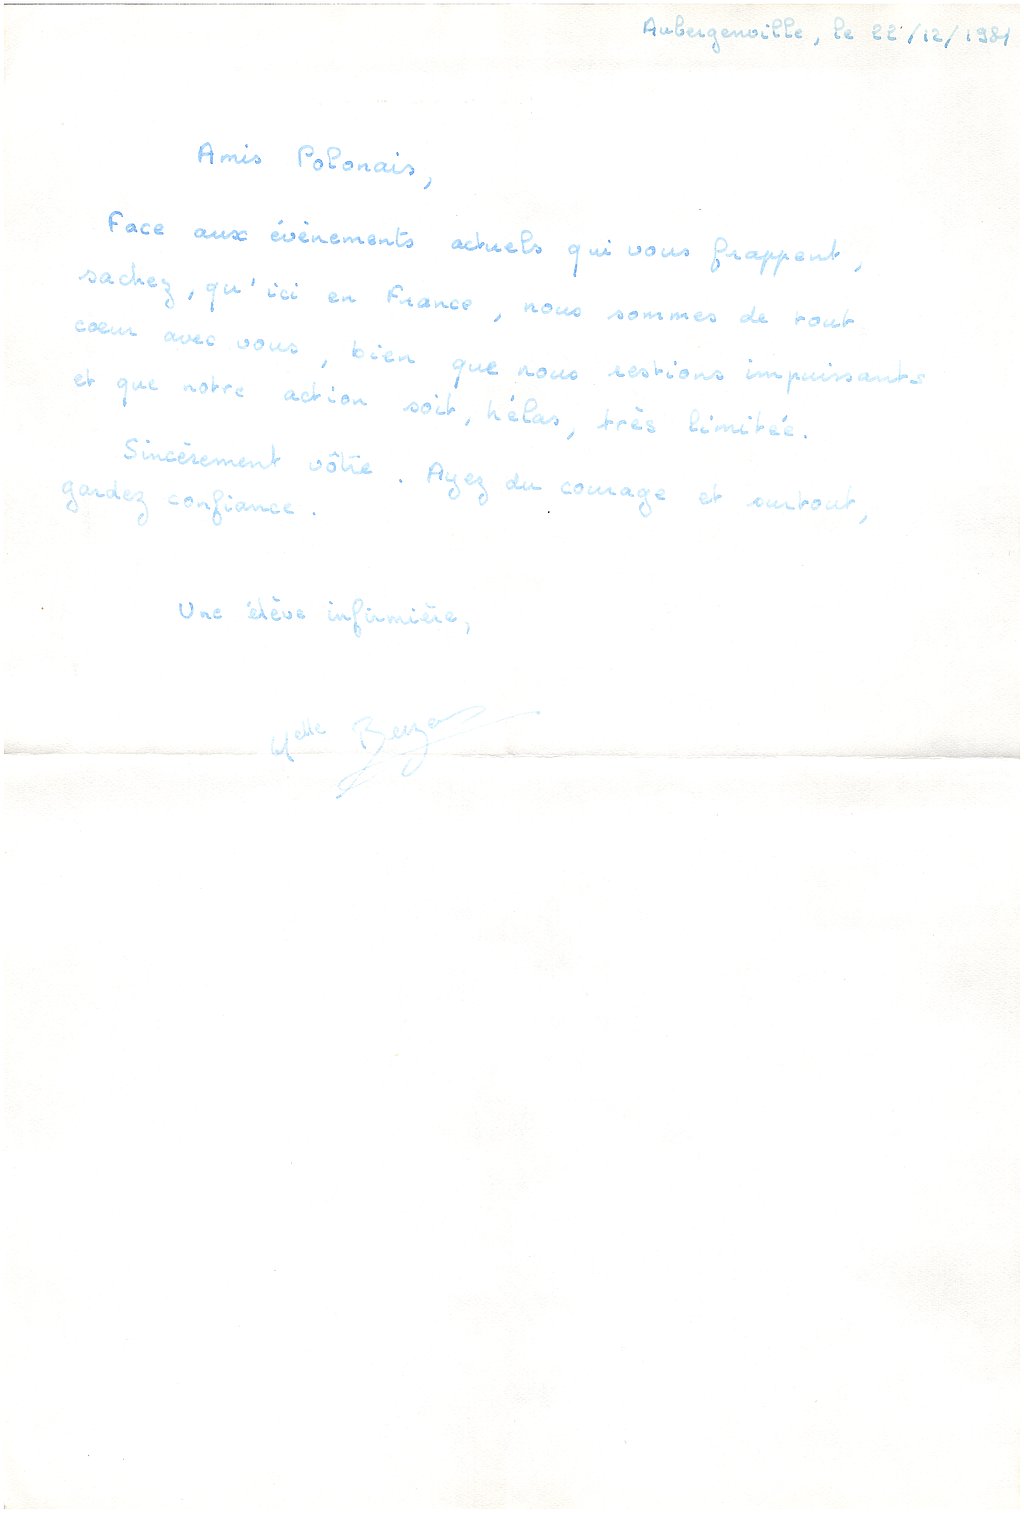 Aubergenville, le 22/12/1981
Amis Polonais,
Face aux évènements actuels qui vous frappent,
sachez, qu'ici en France, nous sommes de tout
coeur avec vous, bien que nous restions impuissants
et que notre action soit, hélas, très limitée.
Sincèrement vôtre. Ayez du courage et surtout,
gardez confiance.
Une élève infirmière,
Melle